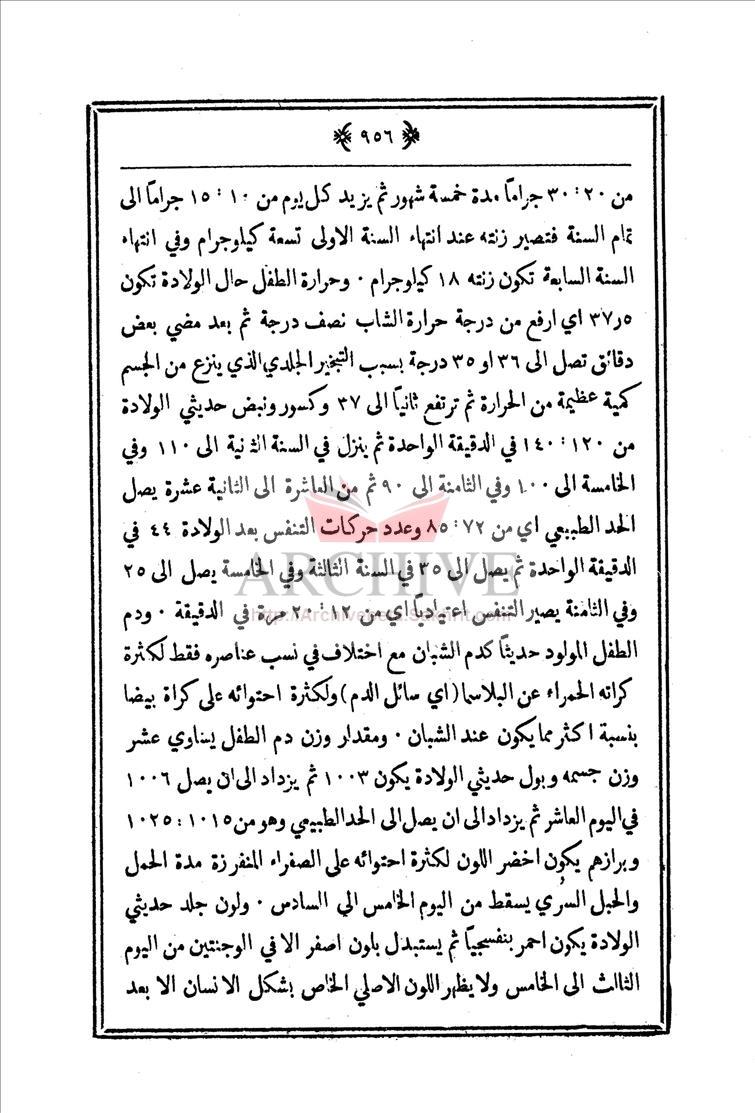 ﴿ ٩٥٦ ﴾
من ٢٠ : ٣٠ جراماً مدة خمسة شهور ثم يزيد كل يوم من ١٠ : ١٥ جراماً الى
تمام السنة فتصير زنته عند انتهاء السنة الاولى تسعة كيلوجرام وفي انتهاء
السنة السابعة تكون زنته ١٨ كيلوجرام ٠ وحرارة الطفل حال الولادة تكون
٣٧٫٥ اي ارفع من درجة حرارة الشاب نصف درجة ثم بعد مضي بعض
دقائق تصل الى ٣٦ او ٣٥ درجة بسبب التبخير الجلدي الذي ينزع من الجسم
كمية عظيمة من الحرارة ثم ترتفع ثانياً الى ٣٧ وكسور ونبض حديثي الولادة
من ١٢٠ : ١٤٠ في الدقيقة الواحدة ثم ينزل في السنة الثانية الى ١١٠ وفي
الخامسة الى ١٠٠ وفي الثامنة الى ٩٠ ثم من العاشرة الى الثانية عشرة يصل
الحد الطبيعي اي من ٧٢ : ٨٥ وعدد حركات التنفس بعد الولادة ٤٤ في
الدقيقة الواحدة ثم يصل الى ٣٥ في السنة الثالثة وفي الخامسة يصل الى ٢٥
وفي الثامنة يصير التنفس اعتيادياً اي من ١٢ : ٢٠ مرة في الدقيقة ٠ ودم
الطفل المولود حديثاً كدم الشبان مع اختلاف في نسب عناصره فقط لكثرة
كراته الحمراء عن البلاسما (اي سائل الدم) ولكثرة احتوائه على كراة بيضا
بنسبة اكثر مما يكون عند الشبان ٠ ومقدار وزن دم الطفل يساوي عشر
وزن جسمه وبول حديثي الولادة يكون ١٠٠٣ ثم يزداد الى ان يصل ١٠٠٦
في اليوم العاشر ثم يزداد الى ان يصل الى الحد الطبيعي وهو من ١٠١٥ : ١٠٢٥
وبرازهم يكون اخضر اللون لكثرة احتوائه على الصفراء المنفرزة مدة الحمل
والحبل السُري يسقط من اليوم الخامس الى السادس ٠ ولون جلد حديثي
الولادة يكون احمر بنفسجياً ثم يستبدل بلون اصفر الا في الوجنتين من اليوم
الثالث الى الخامس ولا يظهر اللون الاصلي الخاص بشكل الانسان الا بعد
ARCHIVE